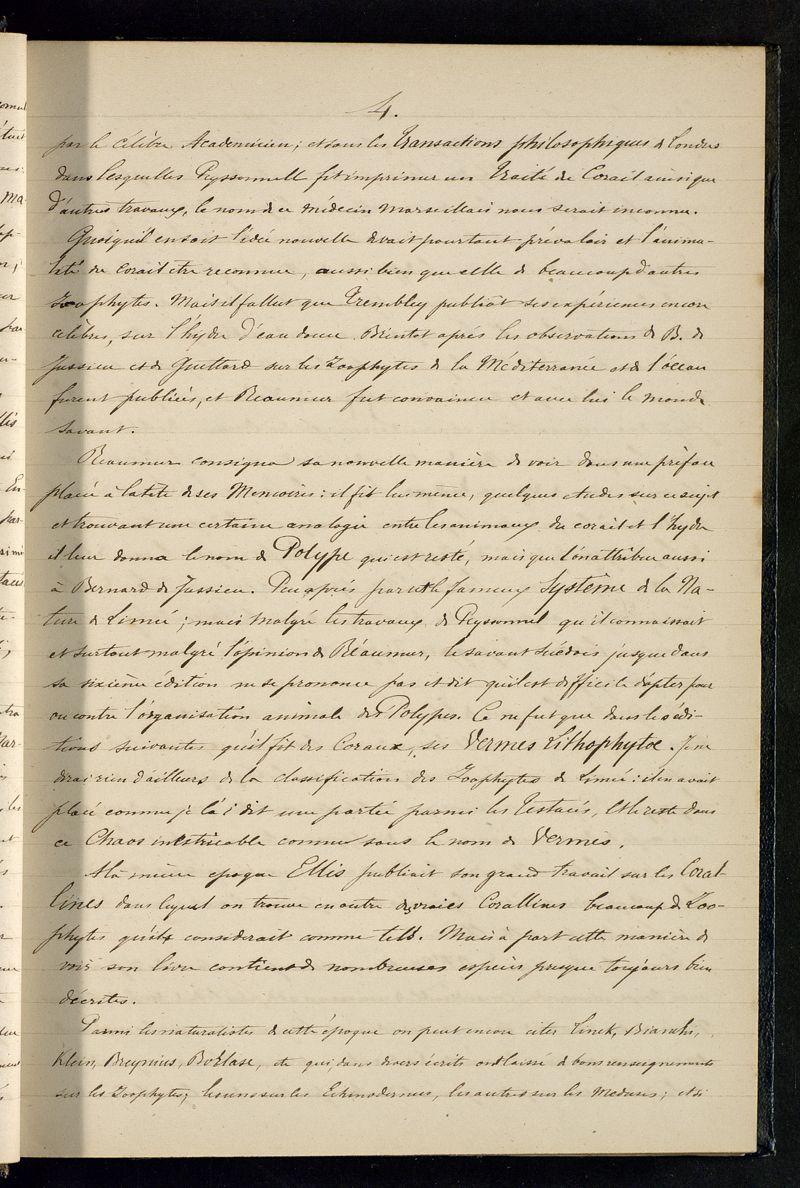 4.
par le célèbre Academicien; et sans les Transactions philosophiques de Londres
dans lesquelles Peyssonnell fit imprimer un Traité du Corail ainsi que
d'autres travaux, le nom de ce médecin Marseillais nous serait inconnu.
Quoiqu'il en soit l'idée nouvelle devait pourtant prévaloir et l'anima-
lité du corail être reconnue, aussi bien que celle de beaucoup d'autres
Zoophytes. Mais il fallut que Trembley publiât ses expériences encore
célèbres, sur l'hydre d'eau douce. Bientot après les observations de B. de
Jussieu et de Guettard sur les Zoophytes de la Méditerranée et de l'océan
furent publiées, et Réaumur fut convaincu et avec lui le monde
savant.
Réaumur consigna sa nouvelle manière de voir dans une préface
placée à la tête de ses Memoires: il fit lui même, quelques études sur ce sujet
et trouvant une certaine analogie entre les animaux du corail et l'hydre
il leur donna le nom de Polype qui est resté, mais que l'on attribue aussi
à Bernard de Jussieu. Peu après parut le fameux Système de la Na-
ture de Linné; mais malgré les travaux de Peyssonnel qu'il connaissait
et surtout malgré l'opinion de Réaumur, le savant suédois jusque dans
sa sixième édition ne se prononce pas et dit qu'il est difficile d'opter pour
ou contre l'organisation animale des Polypes. Ce ne fut que dans les édi-
tions suivantes qu'il fit des Coraux, ses Vermes Lithophytæ. Je ne
dirai rien d'ailleurs de la classification des Zoophytes de Linné: il en avait
placé comme je l'ai dit une partie parmi les Testacés, et le reste dans
ce Chaos inextricable connu sous le nom de Vermes.
A la même epoque Ellis publiait son grand travail sur les Coral-
lines dans lequel on trouve en outre de vraies Corallines beaucoup de Zoo-
phytes qu'il considerait comme tels. Mais à part cette manière de
voir son livre contient de nombreuses espèces presque toujours bien
décrites.
Parmi les naturalistes de cette époque on peut encore citer Linck, Bianchi,
Klein, Breynius, Borlase, etc qui, dans divers écrits ont laissé de bons renseignements
sur les Zoophytes; les uns sur les Echinodermes, les autres sur les Méduses; et si